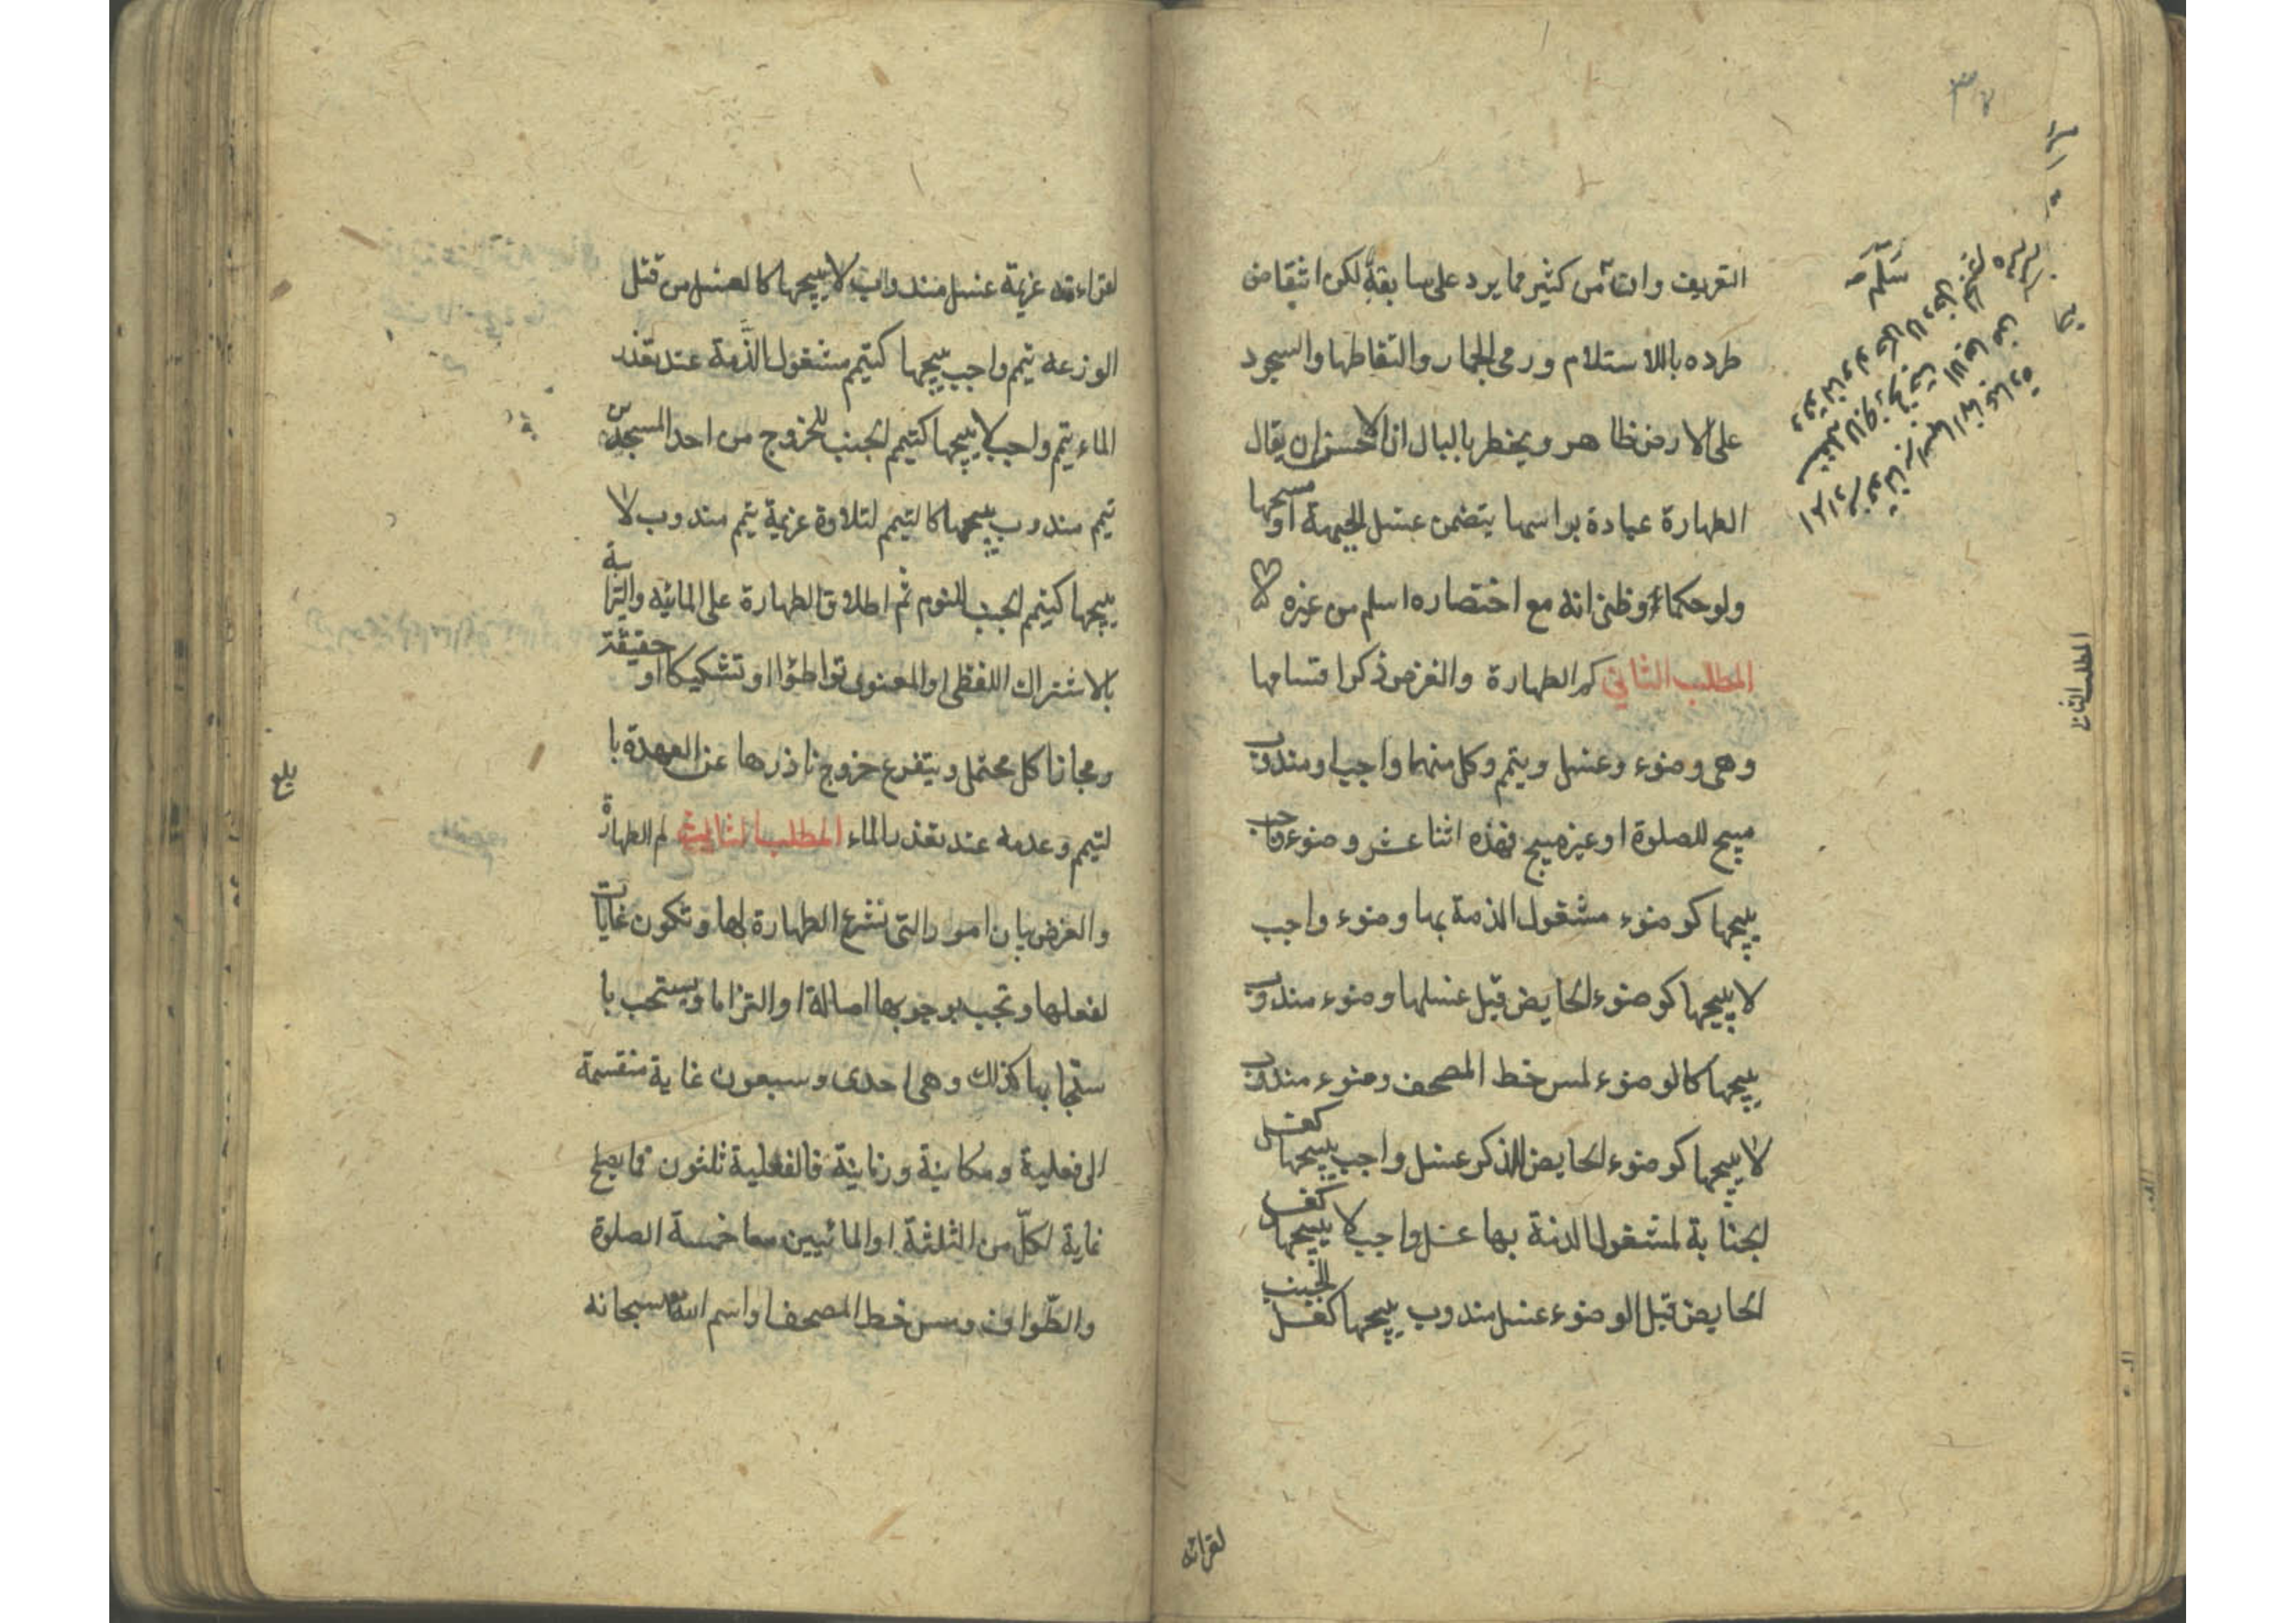 التعريف وان امن كثير مما يرد على سابقة لكن انتقاض
طرده باللاستلام ورمى الجمار والتقاطها والسجود
على الارض ظاهر ويخطر بالبال ان الاحسن ان يقال
الطهارة عبادة بواسمها يتضمن غسل الجبهة او مسحها
ولو حكما وظنى انه مع اختصاره اسلم من غيره
المطلب الثاني كم الطهارة والغرض ذكر اقسامها
وهى وضوء وغسل وتيمم وكل منهما واجب او مندوب
مبيح للصلوة او غير مبيح فهذه اثنا عشر وضوء واجب
يبيحها كوضوء مشغول الذمة بها وضوء واجب
لا يبيحها كوضوء الحايض قبل غسلها وضوء مندوب
يبيحها كالوضوء لمس خط المصحف وضوء مندوب
لا يبيحها كوضوء الحايض للذكر غسل واجب يبيحها كغسل
الجنابة لمشغول الذمة بها غسل واجب لا يبيحها كغسل
الحايض قبل الوضوء غسل مندوب يبيحها كغسل الجنب
لقرائة
المطلب الثاني
سلمه
لقراءته عزيمة غسل مندوب لا يبيحها كالغسل من قتل
الوزغه تيمم واجب يبيحها كتيمم مشغول الذمة عند تعذر
الماء تيمم واجب لا يبيحها كتيمم الجنب للخروج من احد المسجدين
تيمم مندوب يبيحها كالتيمم لتلاوة عزيمة تيمم مندوب لا
يبيحها كتيمم الجنب للنوم ثم اطلاق الطهارة على المائية والترابية
بالاشتراك اللفظى او المعنوى تواطؤا او تشكيكا او حقيقة
ومجازا كل محتمل ويتفرع خروج ناذرها عن العهدة با
لتيمم وعدمه عند تعذر الماء المطلب الثالث لم الطهارة
والغرض بيان امور التى تشرع الطهارة لها وتكون غايات
لفعلها وتجب بوجوبها اصالة او التزاما ويستحب با
ستحبابها كذلك وهى احدى وسبعون غاية منقسمة
الى فعلية ومكانية وزمانية فالفعلية ثلثون فما يصلح
غاية لكل من الثلثة او المائيين معا خمسة الصلوة
والطواف ومس خط المصحف او اسم الله سبحانه
بلغ